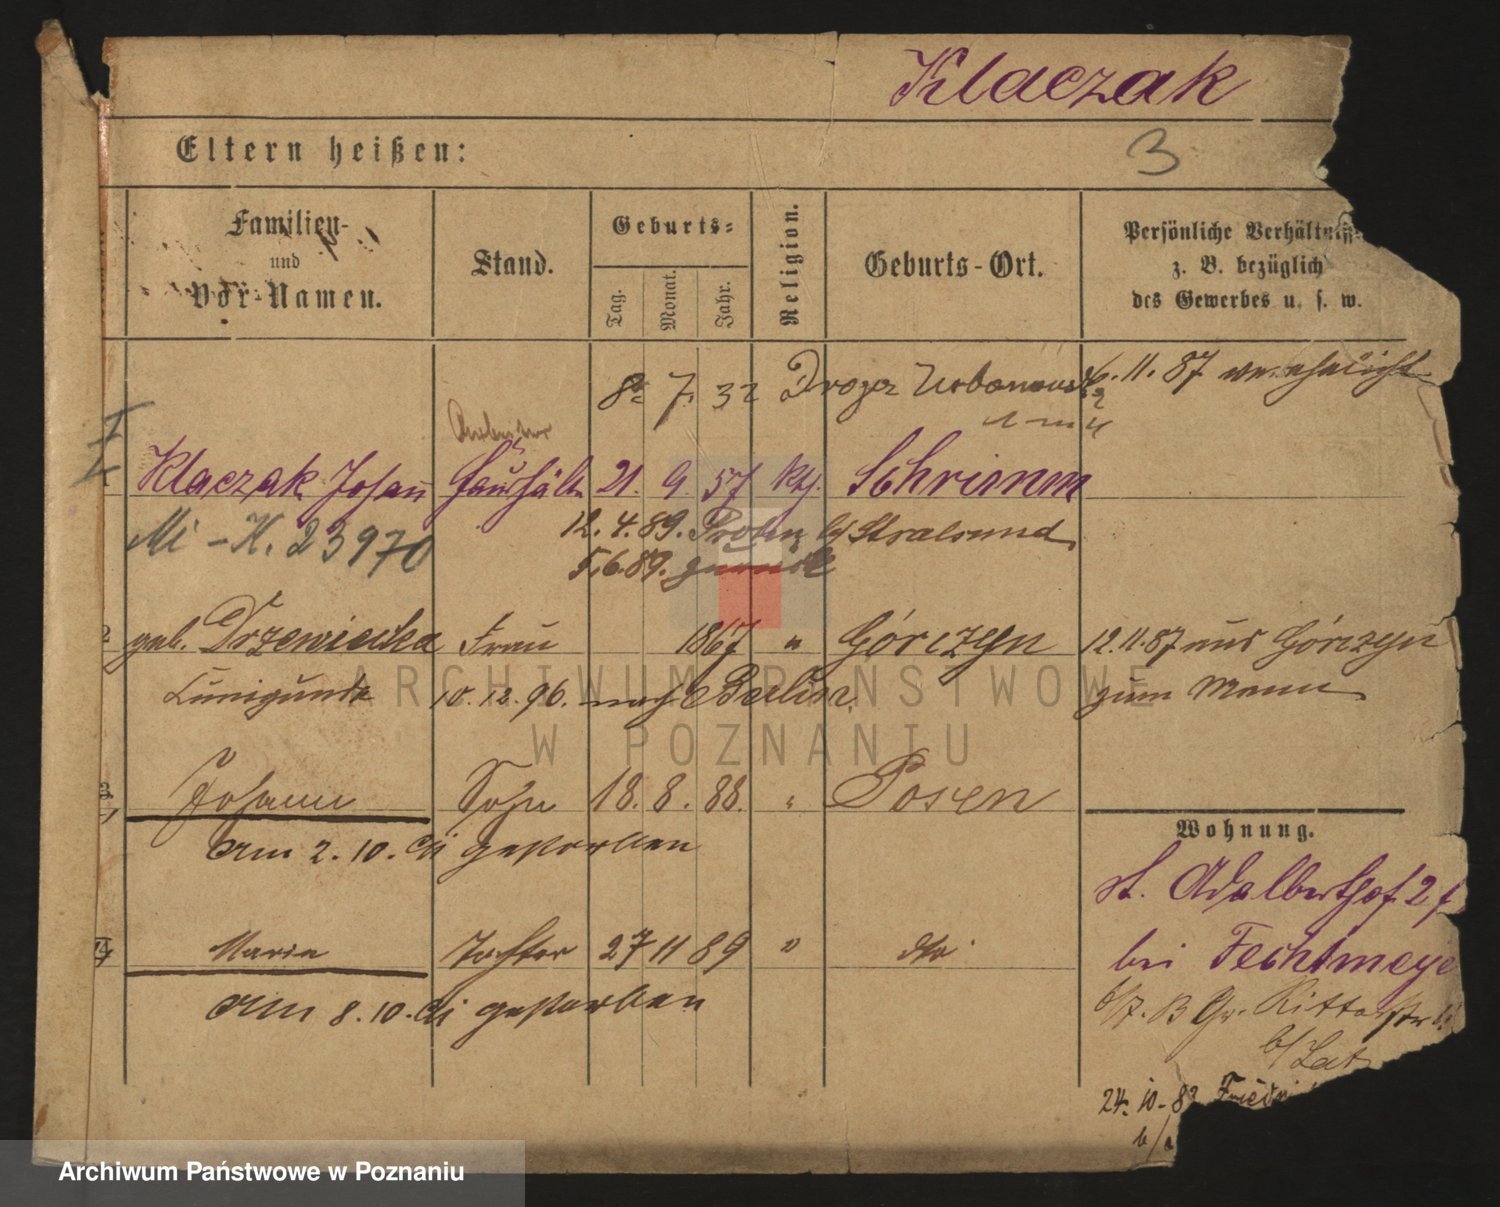 Klaczak
3
Eltern heißen:
Familien-
und
Vor-Namen.
Stand.
Geburts-
Tag.
Monat.
Jahr.
Religion.
Geburts-Ort.
Persönliche Verhältniss
z. B. bezüglich
des Gewerbes u. s. w.
8 7. 32 Droger Urbanowski
6. 11. 87 verehelicht
Klaczak Johann Haushält. 21. 9. 57 kth. Schrimm
Mi - K. 23970
12. 4. 89. Prohn b/ Stralsund
5. 6. 89. zurück
2 geb. Drzewiecka Frau 1867 " Górczyn 12. 11. 87 aus Górczyn
Kunigunde 10. 12. 96. nach Berlin zum Mann
3 Johann Sohn 18. 8. 88. " Posen
am 2. 10. gestorben
Wohnung.
St. Adalberthof 2
4 Maria Tochter 27 11 89 " dto
bei Fechtmeye
am 8. 10. gestorben
Gr. Ritterstr
24. 10. 8
ARCHIWUM PAŃSTWOWE
W POZNANIU
Archiwum Państwowe w Poznaniu